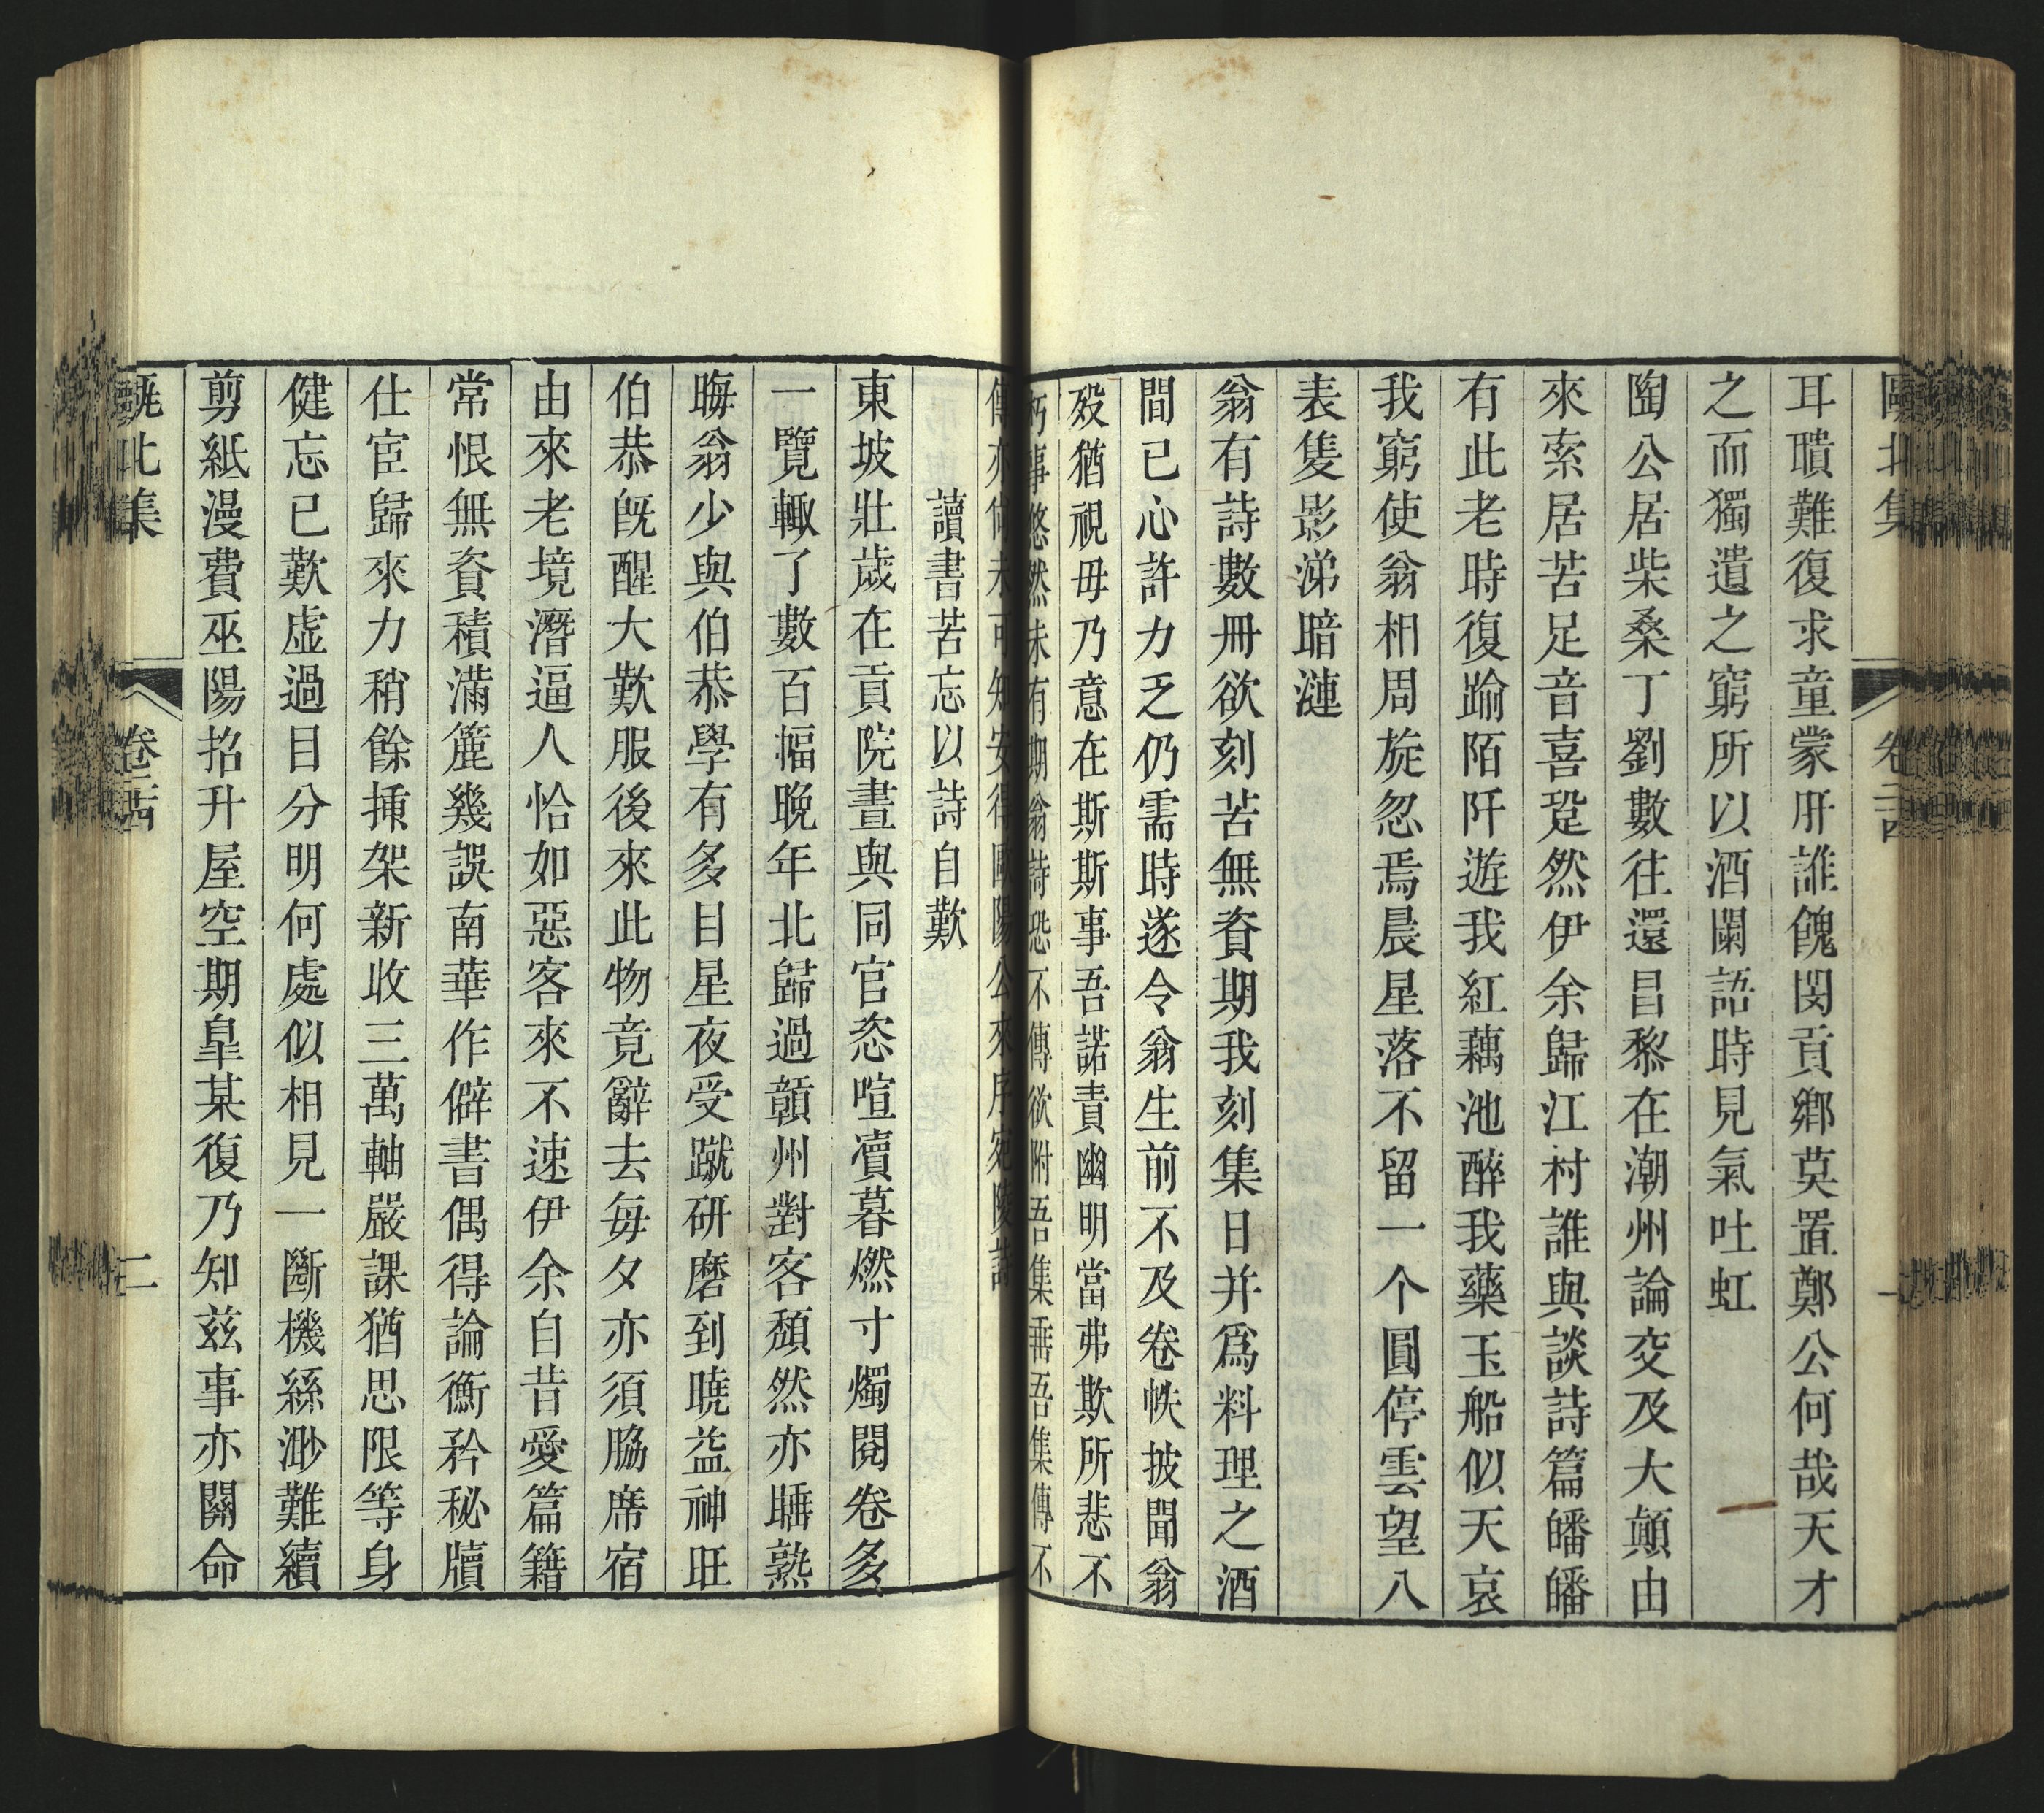 甌北集
卷二十四
一
耳聵難復求童蒙肝誰餽閔貢鄉莫置鄭公何哉天才
之而獨遺之窮所以酒闌語時見氣吐虹
陶公居柴桑丁劉數往還昌黎在潮州論交及大顛由
來索居苦足音喜跫然伊余歸江村誰與談詩篇皤皤
有此老時復踰陌阡遊我紅藕池醉我藥玉船似天哀
我窮使翁相周旋忽焉晨星落不留一个圓停雲望八
表隻影涕暗漣
翁有詩數冊欲刻苦無資期我刻集日并爲料理之酒
間已心許力乏仍需時遂令翁生前不及卷帙披聞翁
歿猶視毋乃意在斯斯事吾諾責幽明當弗欺所悲不
朽事悠然未有期翁詩恐不傳欲附吾集垂吾集傳不
傳亦尚未可知安得歐陽公來序宛陵詩
讀書苦忘以詩自歎
東坡壯歲在貢院晝與同官恣喧瀆暮燃寸燭閱卷多
一覽輙了數百幅晚年北歸過贛州對客頹然亦睡熟
晦翁少與伯恭學有多目星夜受蹴研磨到曉益神旺
伯恭旣醒大歎服後來此物竟辭去每夕亦須脇席宿
由來老境潛逼人恰如惡客來不速伊余自昔愛篇籍
常恨無資積滿簏幾誤南華作僻書偶得論衡矜秘牘
仕宦歸來力稍餘揷架新收三萬軸嚴課猶思限等身
健忘已歎虛過目分明何處似相見一斷機絲渺難續
剪紙漫費巫陽招升屋空期皐某復乃知兹事亦關命
甌北集
卷二十四
二